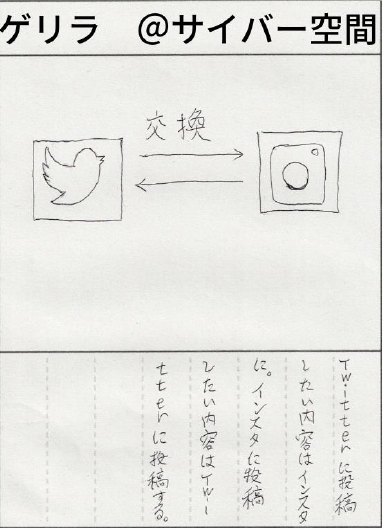 ゲリラ　@サイバー空間
交換
Twitterに投稿
したい内容はインスタ
に。インスタに投稿
したい内容はTwi-
tterに投稿する。